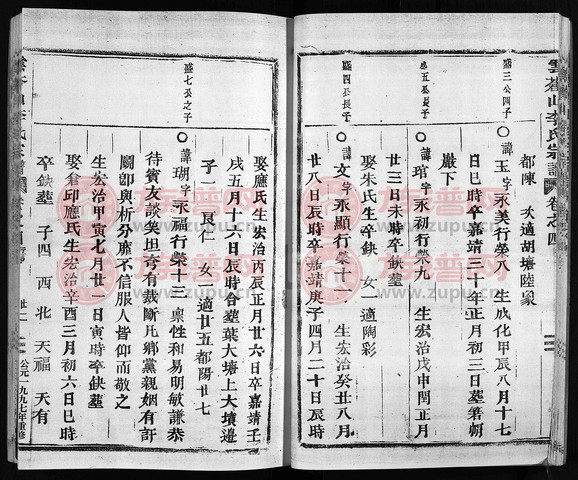 雲蒼山李氏宗譜 卷之四
都陳 次適胡塘陸象
盛三公四子
諱玉字永美行榮八 生成化甲辰八月十七
日巳時卒嘉靖三十年正月初三日葬箬朝
嚴下
盛五公長子
諱琯字永初行榮九 生宏治戊申閏正月
廿三日未時卒缺葬
娶朱氏生卒缺 女一適陶彩
盛四公長子
諱文字永顯行榮十二 生宏治癸丑八月
廿八日辰時卒嘉靖庚子四月二十日辰時
娶應氏生宏治丙辰正月廿六日卒嘉靖壬
戌五月十六日辰時合葬葉大塘上大墳邊
子一良仁 女一適廿五都陽廿七
盛七公之子
諱瑚字永福行榮十三 稟性和易明敏謙恭
待賓友談笑坦奇有裁斷凡鄉黨親姻有訐
鬭卽與析分靡不信服人皆仰而敬之
生宏治甲寅七月廿一日寅時卒缺葬
娶倉邱應氏生宏治辛酉三月初六日巳時
卒缺葬 子四 西 北 天福 天有
廿二
公元一九九七年重修
族譜网
www.zupu.cn
族譜网
www.zupu.cn